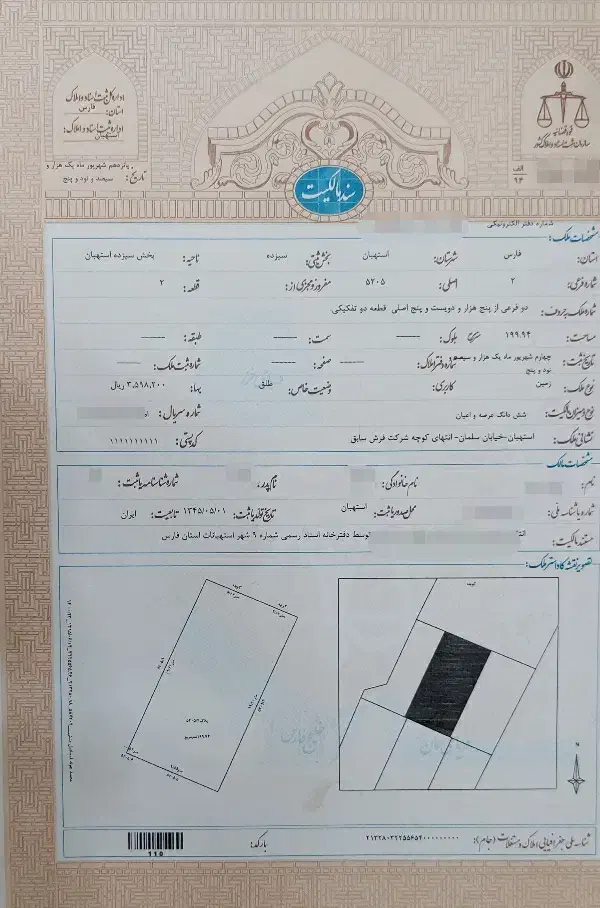 اداره کل ثبت اسناد و املاک
استان: فارس
اداره ثبت اسناد و املاک:
استهبان
تاریخ: پانزدهم شهریور ماه یک هزار و
سیصد و نود و پنج
قوه قضائیه
سازمان ثبت اسناد و املاک کشور
الف
۹۴
سند مالکیت
شماره دفتر الکترونیکی
مشخصات ملک:
استان: فارس شهرستان: استهبان بخش ثبتی: سیزده ناحیه: بخش سیزده استهبان
شماره فرعی: ۲ اصلی: ۵۲۰۵ مفروز و مجزی از: قطعه: ۲
شماره ملک به حروف: دو فرعی از پنج هزار و دویست و پنج اصلی قطعه دو تفکیکی
مساحت: ۱۹۹.۹۴ مترمربع بلوک: —— سمت: —— طبقه: ——
تاریخ ثبت: چهارم شهریور ماه یک هزار و سیصد و نود و پنج شماره دفتر املاک: —— صفحه: —— شماره ثبت ملک: ——
نوع ملک: زمین کاربری: وضعیت خاص: طلق بها: ۳,۵۹۸,۲۰۰ ریال
نوع و میزان مالکیت: شش دانگ عرصه و اعیان شماره سریال:
نشانی ملک: استهبان-خیابان سلمان- انتهای کوچه شرکت فرش سابق کد پستی: ۱۱۱۱۱۱۱۱۱۱
مشخصات مالک:
نام: نام خانوادگی: نام پدر: شماره شناسنامه یا ثبت:
شماره یا شناسه ملی: محل صدور یا ثبت: استهبان تاریخ تولد یا ثبت: ۱۳۴۵/۰۵/۰۱ تابعیت: ایران
مستند مالکیت: توسط دفترخانه اسناد رسمی شماره ۹ شهر استهبانات استان فارس
تصویر نقشه کاداستر ملک:
کوچه
N
خلیج فارس
شناسه ملی جغرافیایی املاک و مستغلات (جام):
بارکد:
110